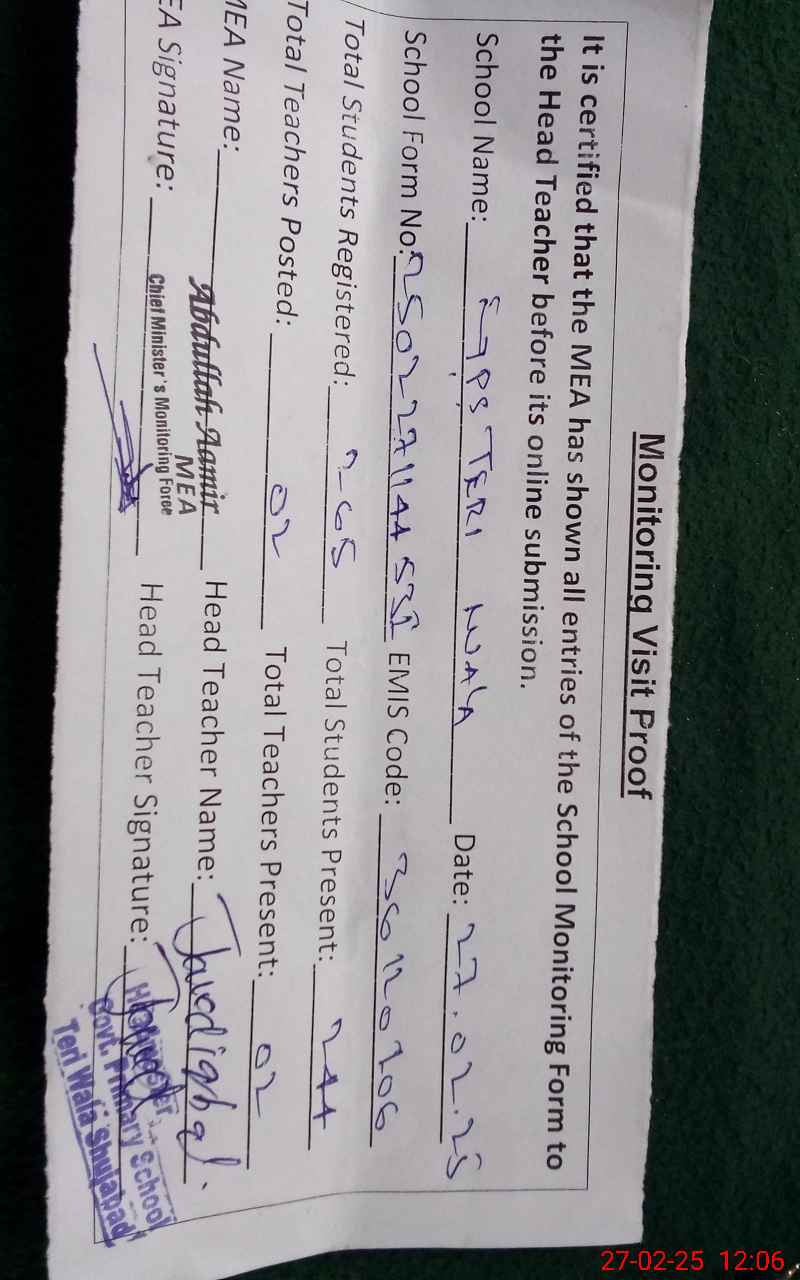 Monitoring Visit Proof
It is certified that the MEA has shown all entries of the School Monitoring Form to
the Head Teacher before its online submission.
School Name: GPS TERI WALA Date: 27.02.25
School Form No: EMIS Code: 36120206
Total Students Registered: 265 Total Students Present: 244
Total Teachers Posted: 02 Total Teachers Present: 02
MEA Name: Abdullah Aamir Head Teacher Name: Javediqbal.
MEA
EA Signature: Chief Minister's Monitoring Force Head Teacher Signature:
Govt. Primary School
Teri Wala Shujabad
27-02-25 12:06